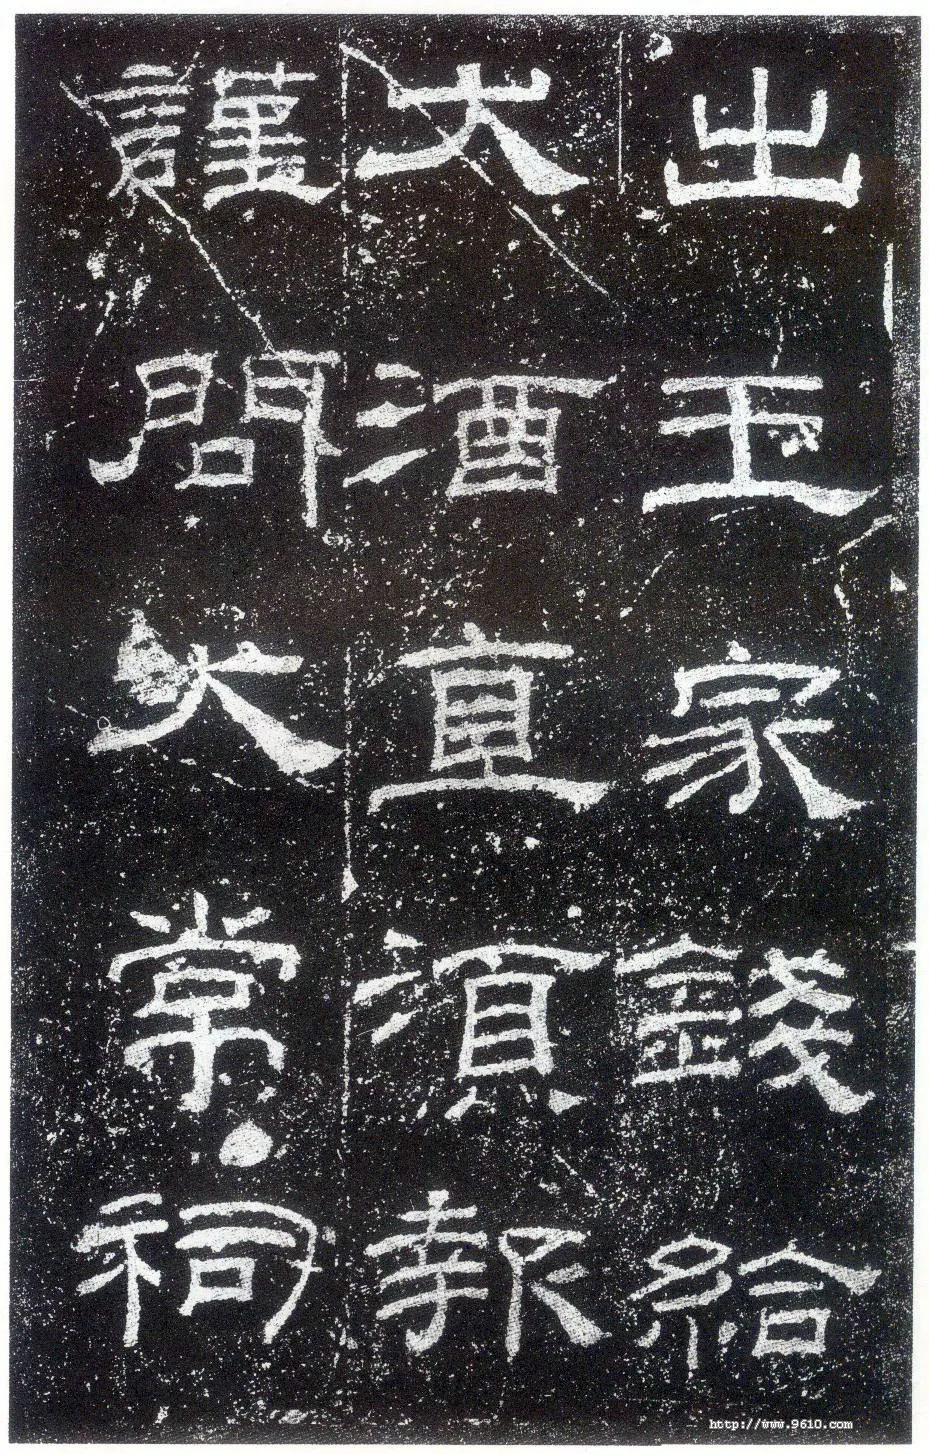 出王家錢給
大酒直湏報
謹問大常祠
http://www.9610.com